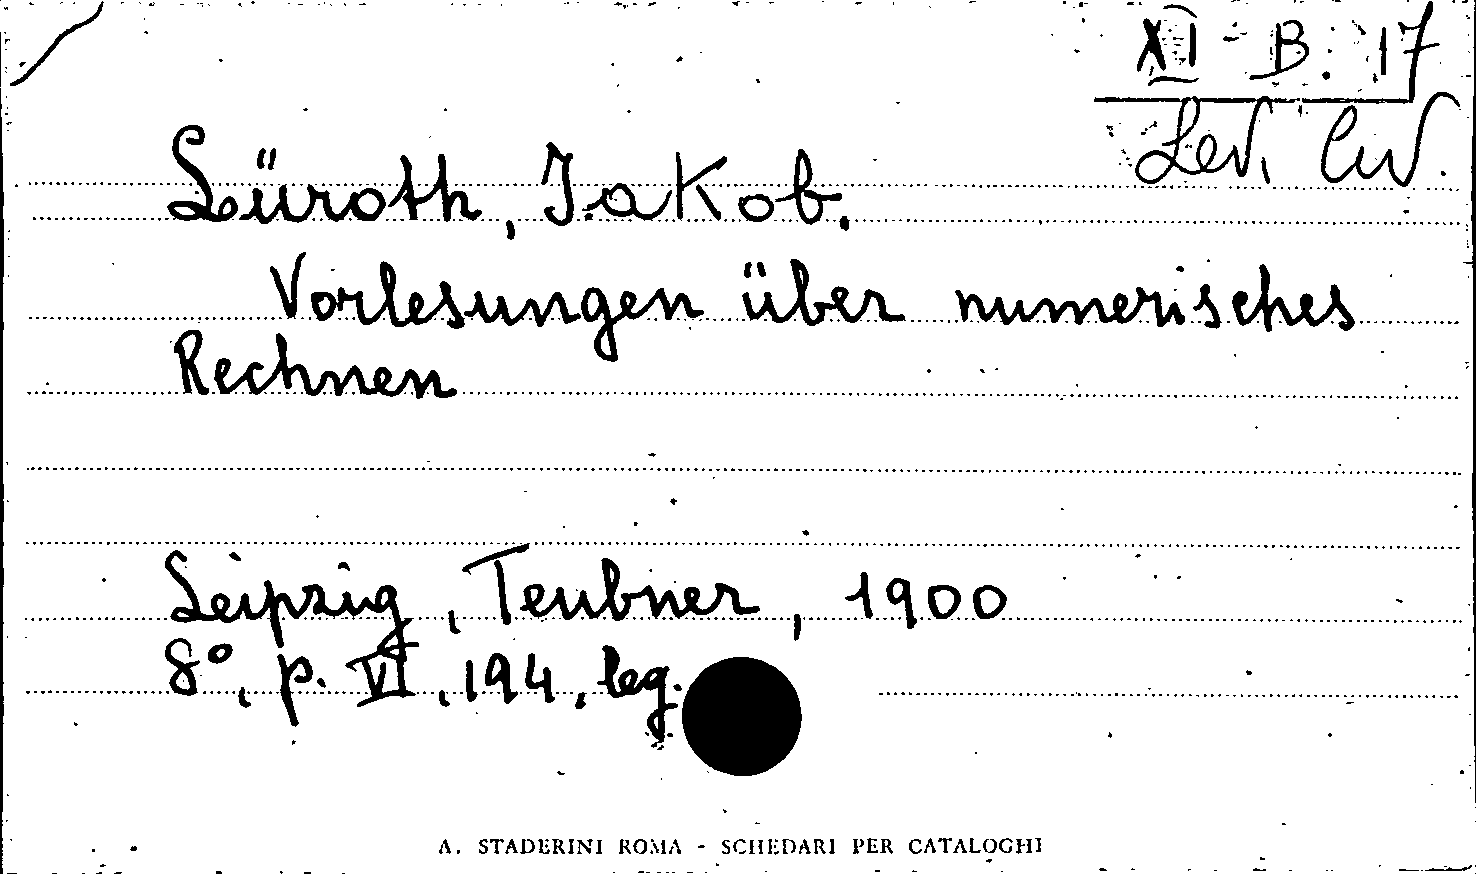 XI - B. 17
Lev. Civ.
Lüroth, Jakob.
Vorlesungen über numerisches
Rechnen
Leipzig, Teubner, 1900
8°, p. VI, 194, leg.
A. STADERINI ROMA - SCHEDARI PER CATALOGHI